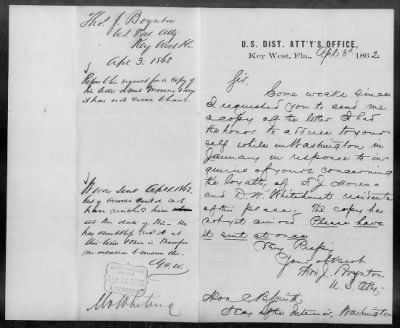 Thos. J. Boynton
U.S. Dist Atty
Key West Fl.
Apl 3. 1862
Refers to his request for a copy of
his letter about Moreno &c
it has not come to hand.
It was sent Apl 1862
but of course could not
have reached him
at the date of this. He
has doubtless recd it at
this time & there is therefore
no occasion to answer this.
Geo. W.
Mr Whiting
U.S. DIST. ATT'Y'S OFFICE,
Key West, Fla., Apl 3d 1862
Sir.
Some weeks since
I requested you to send me
a copy of the letter I had
the honor to address to your
self while in Washington in
January in response to in-
quiries of yours concerning
the loyalty of F. J. Moreno
and D. W. Whitehurst residents
of this place. The copy has
not yet arrived. Please have
it sent at once
Very Respy
Your obt Servt
Thos. J. Boynton
U S Atty.
Hon. C B Smith
Secy of the Interior, Washington